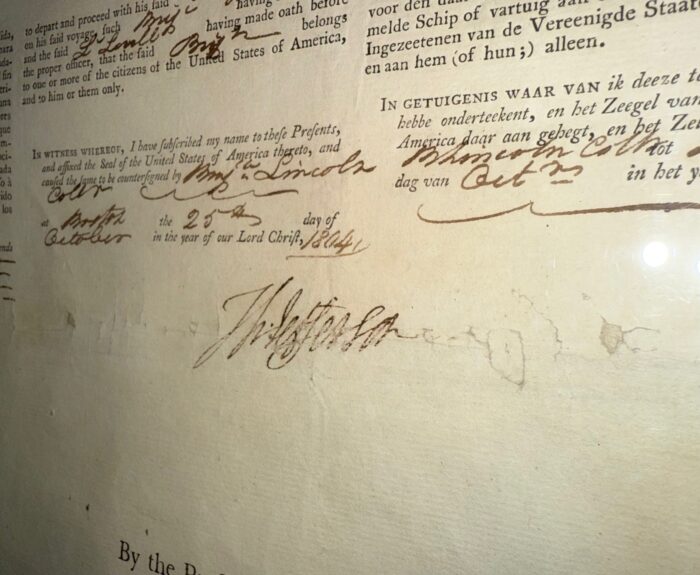 to depart and proceed with his said Brig
on his said voyage, such Brig having
and the said having made oath before
the proper officer, that the said Brig belongs
to one or more of the citizens of the United States of America,
and to him or them only.
IN WITNESS WHEREOF, I have subscribed my name to these Presents,
and affixed the Seal of the United States of America thereto, and
caused the same to be countersigned by Benj.n Lincoln
Collr
at Boston the 25th day of
October in the year of our Lord Christ, 1804
Th: Jefferson
By the
voor den
melde Schip of vartuig aan
Ingezeetenen van de Vereenigde Staat
en aan hem (of hun;) alleen.
IN GETUIGENIS WAAR VAN ik deeze t
hebbe onderteekent, en het Zeegel van
America daar aan gehegt, en het Ze
B Lincoln Collr tot
dag van Oct in het y